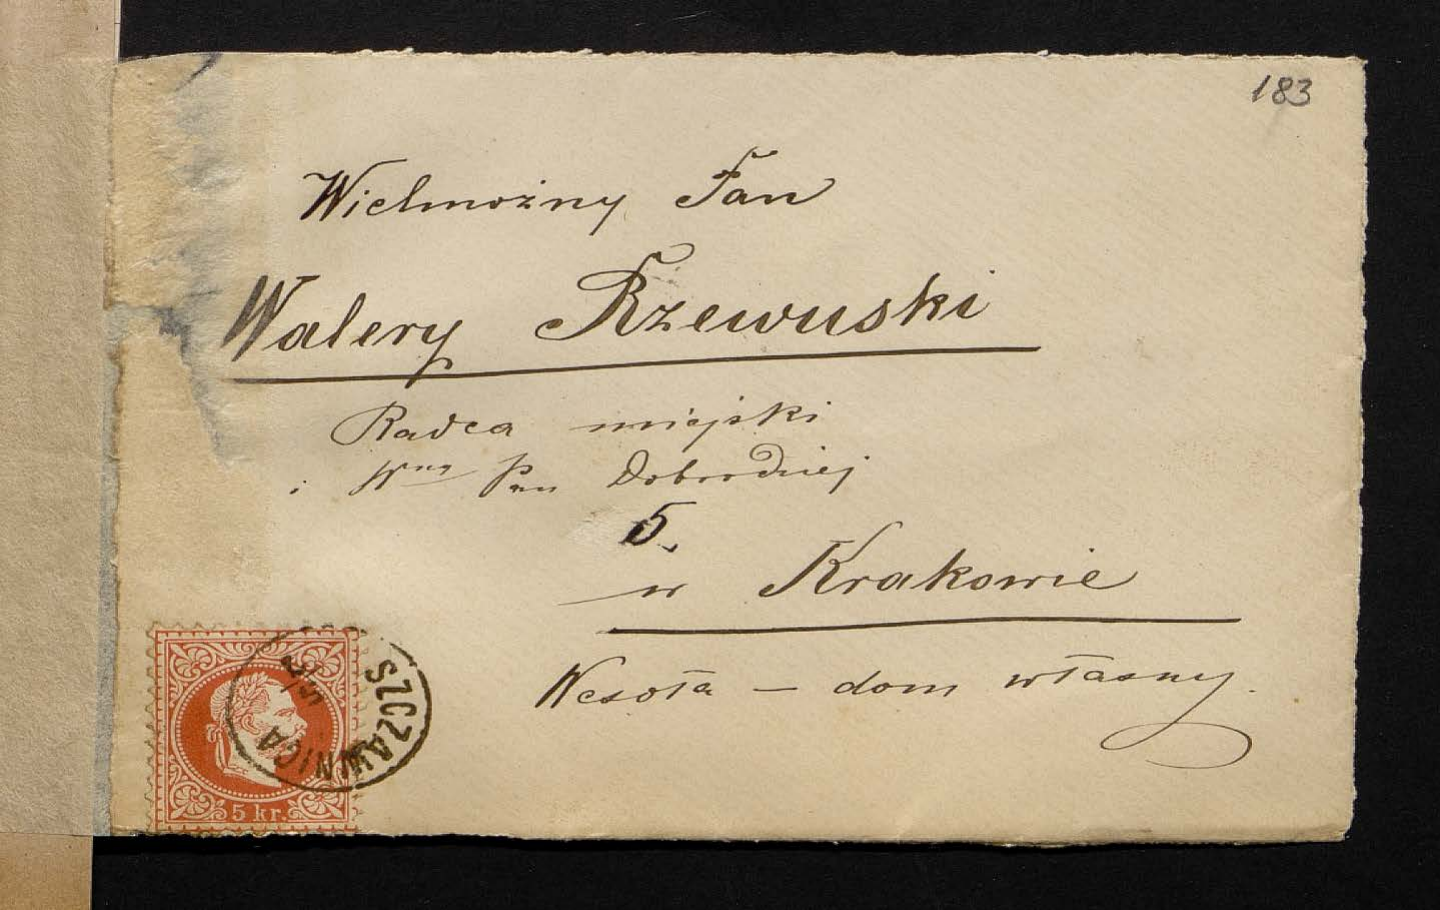 183
Wielmożny Pan
Walery Rzewuski
Radca miejski
i Wny Pan Dobrodziej
5
w Krakowie
Wesoła – dom własny.
SZCZAWNICA
5 kr.